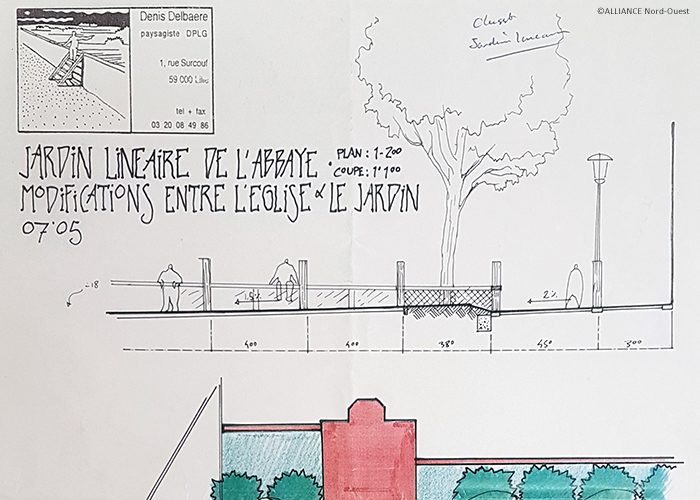 ©ALLIANCE Nord-Ouest
Denis Delbaere
paysagiste DPLG
1, rue Surcouf
59 000 Lille
tel + fax
03 20 08 49 86
Jardin
JARDIN LINEAIRE DE L'ABBAYE.
PLAN : 1-200
COUPE : 1°100
MODIFICATIONS ENTRE L'EGLISE & LE JARDIN
07°05
-18
1.5%
2%
400
400
380
450
300